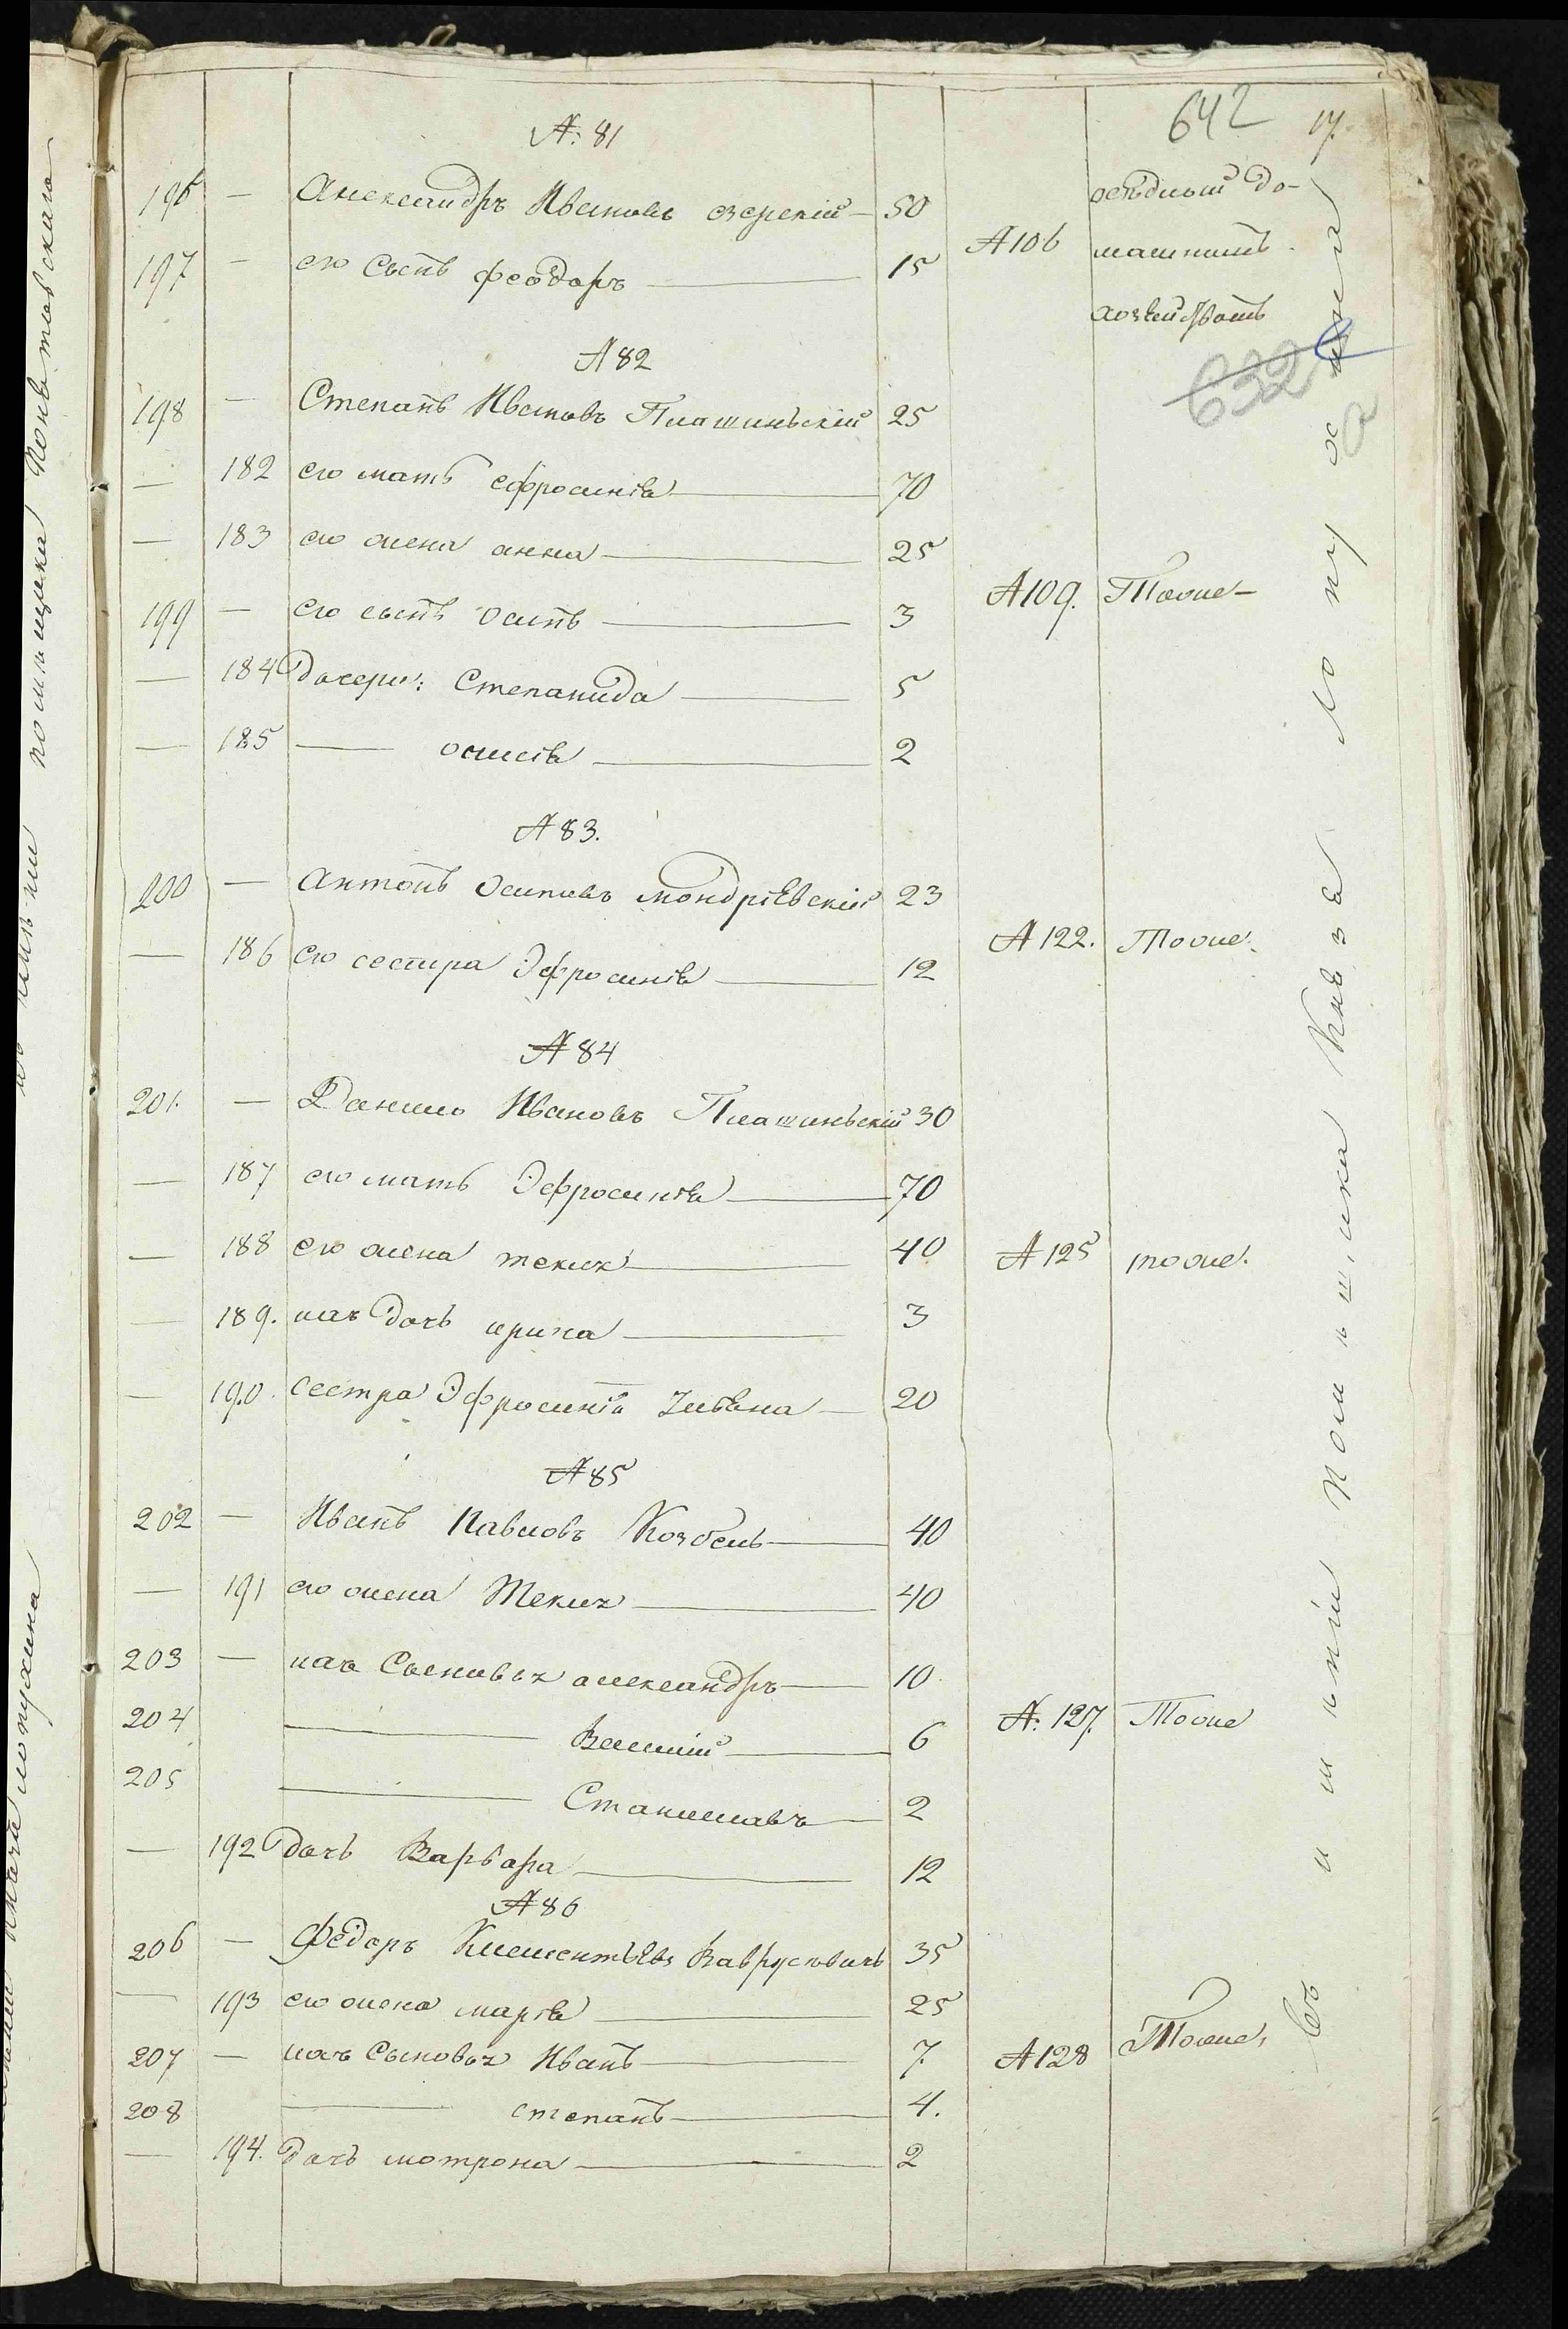 642 17.
№: 81
196 — Александръ Ивановъ озерскій — 50
осѣдлый до-
197 — его Сынъ феодоръ — 15 №106
машнимъ
хозяйствомъ
632
№82
198 — Степанъ Ивановъ Плашинскій 25
— 182 его мать ефросинія — 70
— 183 его жена анна — 25
199 — его сынъ осипъ — 3 №109. Тоже —
— 184 дочери: Степанида — 5
— 185 — — 2
№83.
200 — антонъ осиповъ мондріевскій 23
— 186 его сестра Эфросинія — 12 №122. Тоже.
№84
201. — Данило Ивановъ Плашинскій 30
— 187 его мать Эфросинія — 70
— 188 его жена текля — 40 №125 тоже.
— 189. ихъ дочь ирина — 3
— 190. сестра Эфросинія — 20
№85
202 — Иванъ Павловъ Козбель — 40
— 191 его жена Текля — 40
203 — ихъ Сыновья александръ — 10
204 — Василій — 6 №: 127. Тоже
205 — Станиславъ — 2
— 192 дочь Варвара — 12
№86
206 — Федоръ Клементьевъ Вавруковичь 35
— 193 его жена марія — 25
207 — ихъ Сыновья Иванъ — 7. №128 Тоже.
208 — степанъ — 4.
— 194. дочь мотрона — 2
въ имѣніи Помѣщика Князя Лопухина